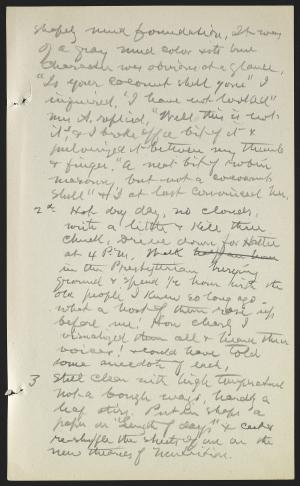 shapely mud foundation, It was
of a gray mud color etc but
character was obvious at a glance.
"Is your cocoanut shell gone" I
inquired, "I have not looked"
my A. replied, Well this is not
it, & I broke off a bit of it &
pulverized it between my thumb
& finger. "A neat bit of Robin
masonry, but not a cocoanut
shell" & I at last convinced her.
2d Hot dry day, no clouds,
with a litter &
Drive down for Hattie
at 4 P.M. Walk half an hour
in the Presbyterian burying
ground & spend ½ hour with the
old people I knew so long ago -
what a host of them rose up
before me! How clearly I
visualized them all & heard their
voices! & could have told
some anecdote of each,
3 Still clear with high temperature
not a bough sways, hardly a
leaf stirs. Put in shape a
paper on "Length of days" & cast &
re-shuffle the sheets of one on the
new theories of